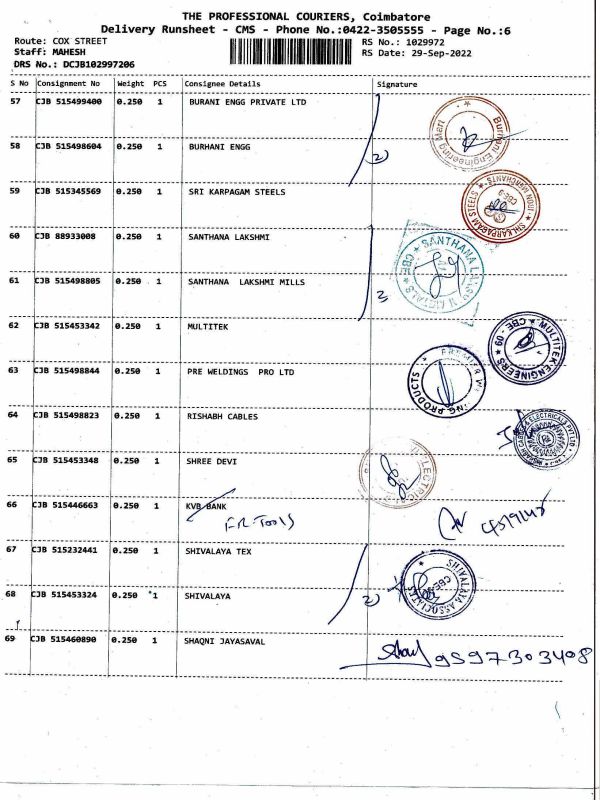 THE PROFESSIONAL COURIERS, Coimbatore
Delivery Runsheet - CMS - Phone No.:0422-3505555 - Page No.:6
Route: COX STREET
RS No.: 1029972
Staff: MAHESH
RS Date: 29-Sep-2022
DRS No.: DCJB102997206
S No Consignment No Weight PCS Consignee Details Signature
57 CJB 515499400 0.250 1 BURANI ENGG PRIVATE LTD
Burhani Engineering Mart
58 CJB 515498604 0.250 1 BURHANI ENGG 2)
59 CJB 515345569 0.250 1 SRI KARPAGAM STEELS
SHI.KARPAGAM STEELS ★ IRON MERCHANTS ★ CBE-9
60 CJB 88933008 0.250 1 SANTHANA LAKSHMI
★ SANTHANA LAKSHMI METALS ★ CBE
61 CJB 515498805 0.250 1 SANTHANA LAKSHMI MILLS
62 CJB 515453342 0.250 1 MULTITEK
★ MULTITEK-ENGINEERS ★ CBE - 09
63 CJB 515498844 0.250 1 PRE WELDINGS PRO LTD
PREMIER PRODUCTS
64 CJB 515498823 0.250 1 RISHABH CABLES
65 CJB 515453348 0.250 1 SHREE DEVI
66 CJB 515446663 0.250 1 KVB BANK
67 CJB 515232441 0.250 1 SHIVALAYA TEX
SHIVALAYA ASSOCIATES CBE-9
68 CJB 515453324 0.250 1 SHIVALAYA 2)
69 CJB 515460890 0.250 1 SHAQNI JAYASAVAL
9597303408